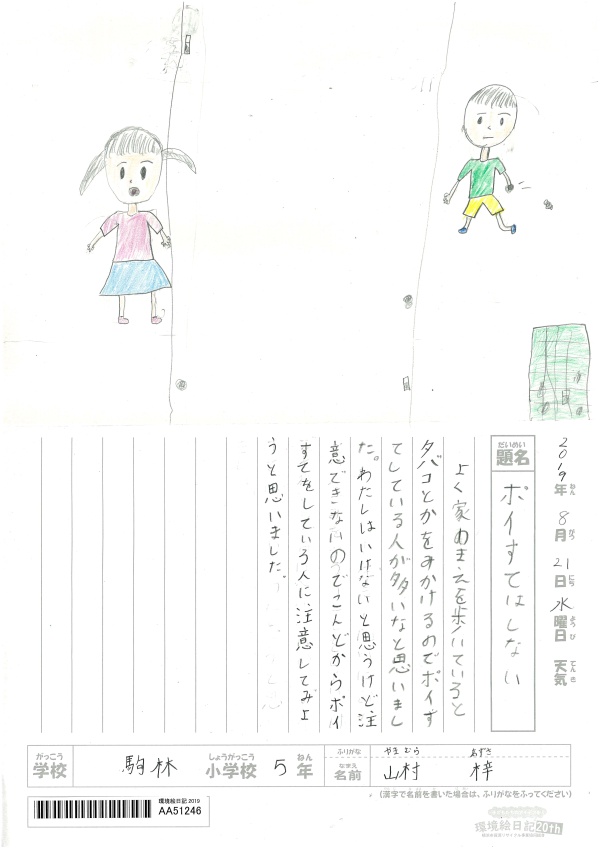 2019年ねん 8月がつ 21日にち 水曜日ようび 天気てんき
題名だいめい ポイすてはしない
よく家のまえを歩いていると
タバコとかをみかけるのでポイす
てしている人が多いなと思いまし
た。わたしはいけないと思うけど注
意できないのでこんどからポイ
すてをしている人に注意してみよ
うと思いました。
がっこう しょうがっこう ねん ふりがな やま むら あずさ
学校 駒林 小学校 5年 なまえ 名前 山村 梓
(漢字で名前を書いた場合は、ふりがなをふってください)
環境絵日記 2019
AA51246
環境絵日記 20th